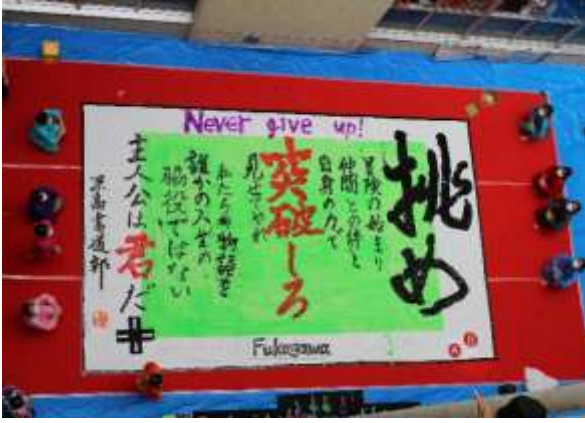 Never give up!
挑め
冒険の始まり
仲間との絆と
自身の力で
突破しろ
見せてやれ
私たちの物語を
誰かの人生の
脇役ではない
主人公は君だ
Fukagawa
A B